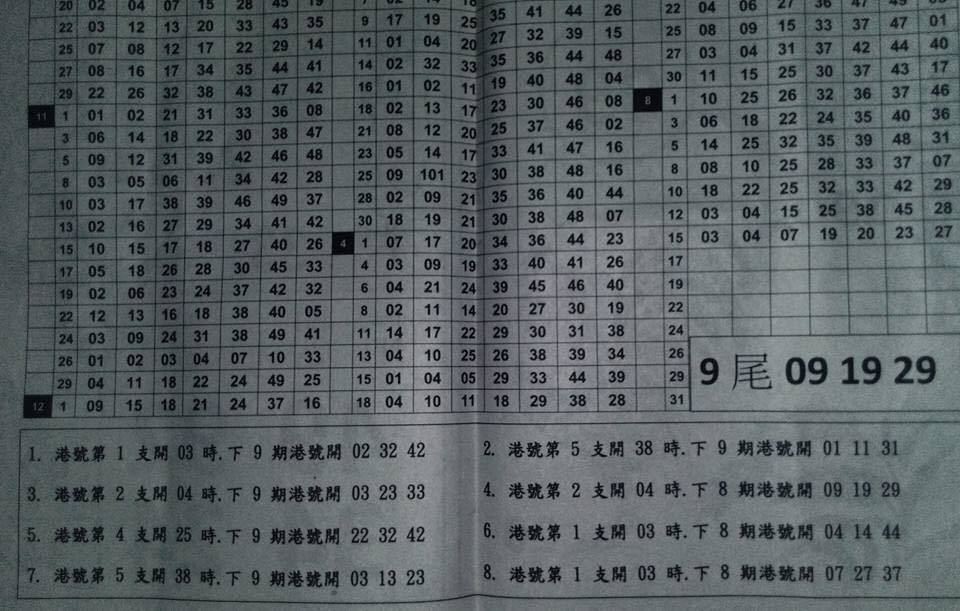 20 02 04 07 15 28 45 19
22 03 12 13 20 33 43 35 9 17 19 25 35 41 44 26 22 04 06 27 36 47 49
25 07 08 12 17 22 29 14 11 01 04 20 27 32 39 15 25 08 09 15 33 37 47 01
27 08 16 17 34 35 44 41 14 02 32 33 35 36 44 48 27 03 04 31 37 42 44 40
29 22 26 32 38 43 47 42 16 01 02 11 19 40 48 04 30 11 15 25 30 37 43 17
11 1 01 02 21 31 33 36 08 18 02 13 17 23 30 46 08 8 1 10 25 26 32 36 37 46
3 06 14 18 22 30 38 47 21 08 12 20 25 37 46 02 3 06 18 22 24 35 40 36
5 09 12 31 39 42 46 48 23 05 14 17 33 41 47 16 5 14 25 32 35 39 48 31
8 03 05 06 11 34 42 28 25 09 101 23 30 38 48 16 8 08 10 25 28 33 37 07
10 03 17 38 39 46 49 37 28 02 09 21 35 36 40 44 10 18 22 25 32 33 42 29
13 02 16 27 29 34 41 42 30 18 19 21 30 38 48 07 12 03 04 15 25 38 45 28
15 10 15 17 18 27 40 26 4 1 07 17 20 34 36 44 23 15 03 04 07 19 20 23 27
17 05 18 26 28 30 45 33 4 03 09 19 33 40 41 26 17
19 02 06 23 24 37 42 32 6 04 21 24 39 45 46 40 19
22 12 13 16 18 38 40 05 8 02 11 14 20 27 30 19 22
24 03 09 24 31 38 49 41 11 14 17 22 29 30 31 38 24
26 01 02 03 04 07 10 33 13 04 10 25 26 38 39 34 26
29 04 11 18 22 24 49 25 15 01 04 05 29 33 44 39 29
12 1 09 15 18 21 24 37 16 18 04 10 11 18 29 38 28 31
9 尾 09 19 29
1. 港號第 1 支開 03 時.下 9 期港號開 02 32 42
2. 港號第 5 支開 38 時.下 9 期港號開 01 11 31
3. 港號第 2 支開 04 時.下 9 期港號開 03 23 33
4. 港號第 2 支開 04 時.下 8 期港號開 09 19 29
5. 港號第 4 支開 25 時.下 9 期港號開 22 32 42
6. 港號第 1 支開 03 時.下 8 期港號開 04 14 44
7. 港號第 5 支開 38 時.下 9 期港號開 03 13 23
8. 港號第 1 支開 03 時.下 8 期港號開 07 27 37